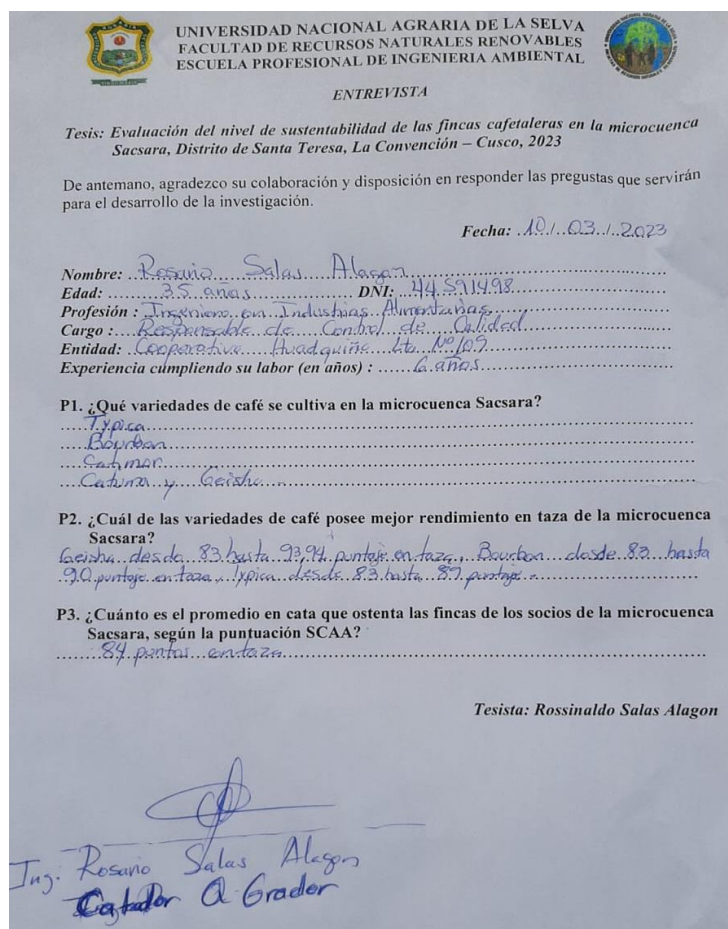 UNIVERSIDAD NACIONAL AGRARIA DE LA SELVA
FACULTAD DE RECURSOS NATURALES RENOVABLES
ESCUELA PROFESIONAL DE INGENIERIA AMBIENTAL
ENTREVISTA
Tesis: Evaluación del nivel de sustentabilidad de las fincas cafetaleras en la microcuenca
Sacsara, Distrito de Santa Teresa, La Convención – Cusco, 2023
De antemano, agradezco su colaboración y disposición en responder las pregustas que servirán
para el desarrollo de la investigación.
Fecha: 10/03/2023
Nombre: Rosario Salas Alagon
Edad: 35 años DNI: 44591498
Profesión : Ingeniero en Industrias Alimentarias
Cargo : Responsable de Control de Calidad
Entidad: Cooperativa Huadquiña Lta Nº109
Experiencia cumpliendo su labor (en años) : 6 años
P1. ¿Qué variedades de café se cultiva en la microcuenca Sacsara?
Typica
Bourbon
Catimor
Caturra y Geisha.
P2. ¿Cuál de las variedades de café posee mejor rendimiento en taza de la microcuenca
Sacsara?
Geisha desde 83 hasta 93,94 puntaje en taza, Bourbon desde 83 hasta
90 puntaje en taza, Typica desde 83 hasta 89 puntaje.
P3. ¿Cuánto es el promedio en cata que ostenta las fincas de los socios de la microcuenca
Sacsara, según la puntuación SCAA?
84 puntos en taza
Tesista: Rossinaldo Salas Alagon
Ing. Rosario Salas Alagon
Catador Q Grader